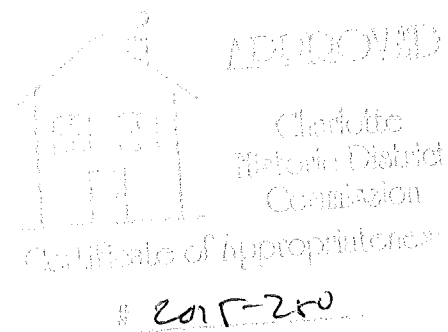 APPROVED
Charlotte
Historic District
Commission
Certificate of Appropriateness
# 2015-280